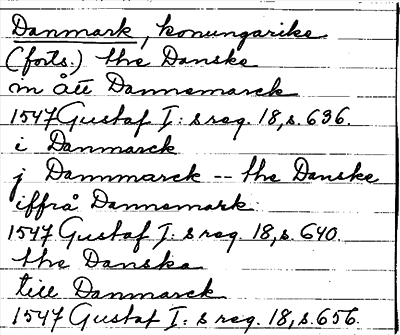 Danmark, konungarike
(forts.) the Danske
in ått Dannemarck
1547 Gustaf I:s reg. 18, s. 636.
i Danmarck
j Dannmarck -- the Danske
iffrå Dannemark
1547 Gustaf I:s reg. 18, s. 640.
the Danska
till Danmarck
1547 Gustaf I:s reg. 18, s. 656.